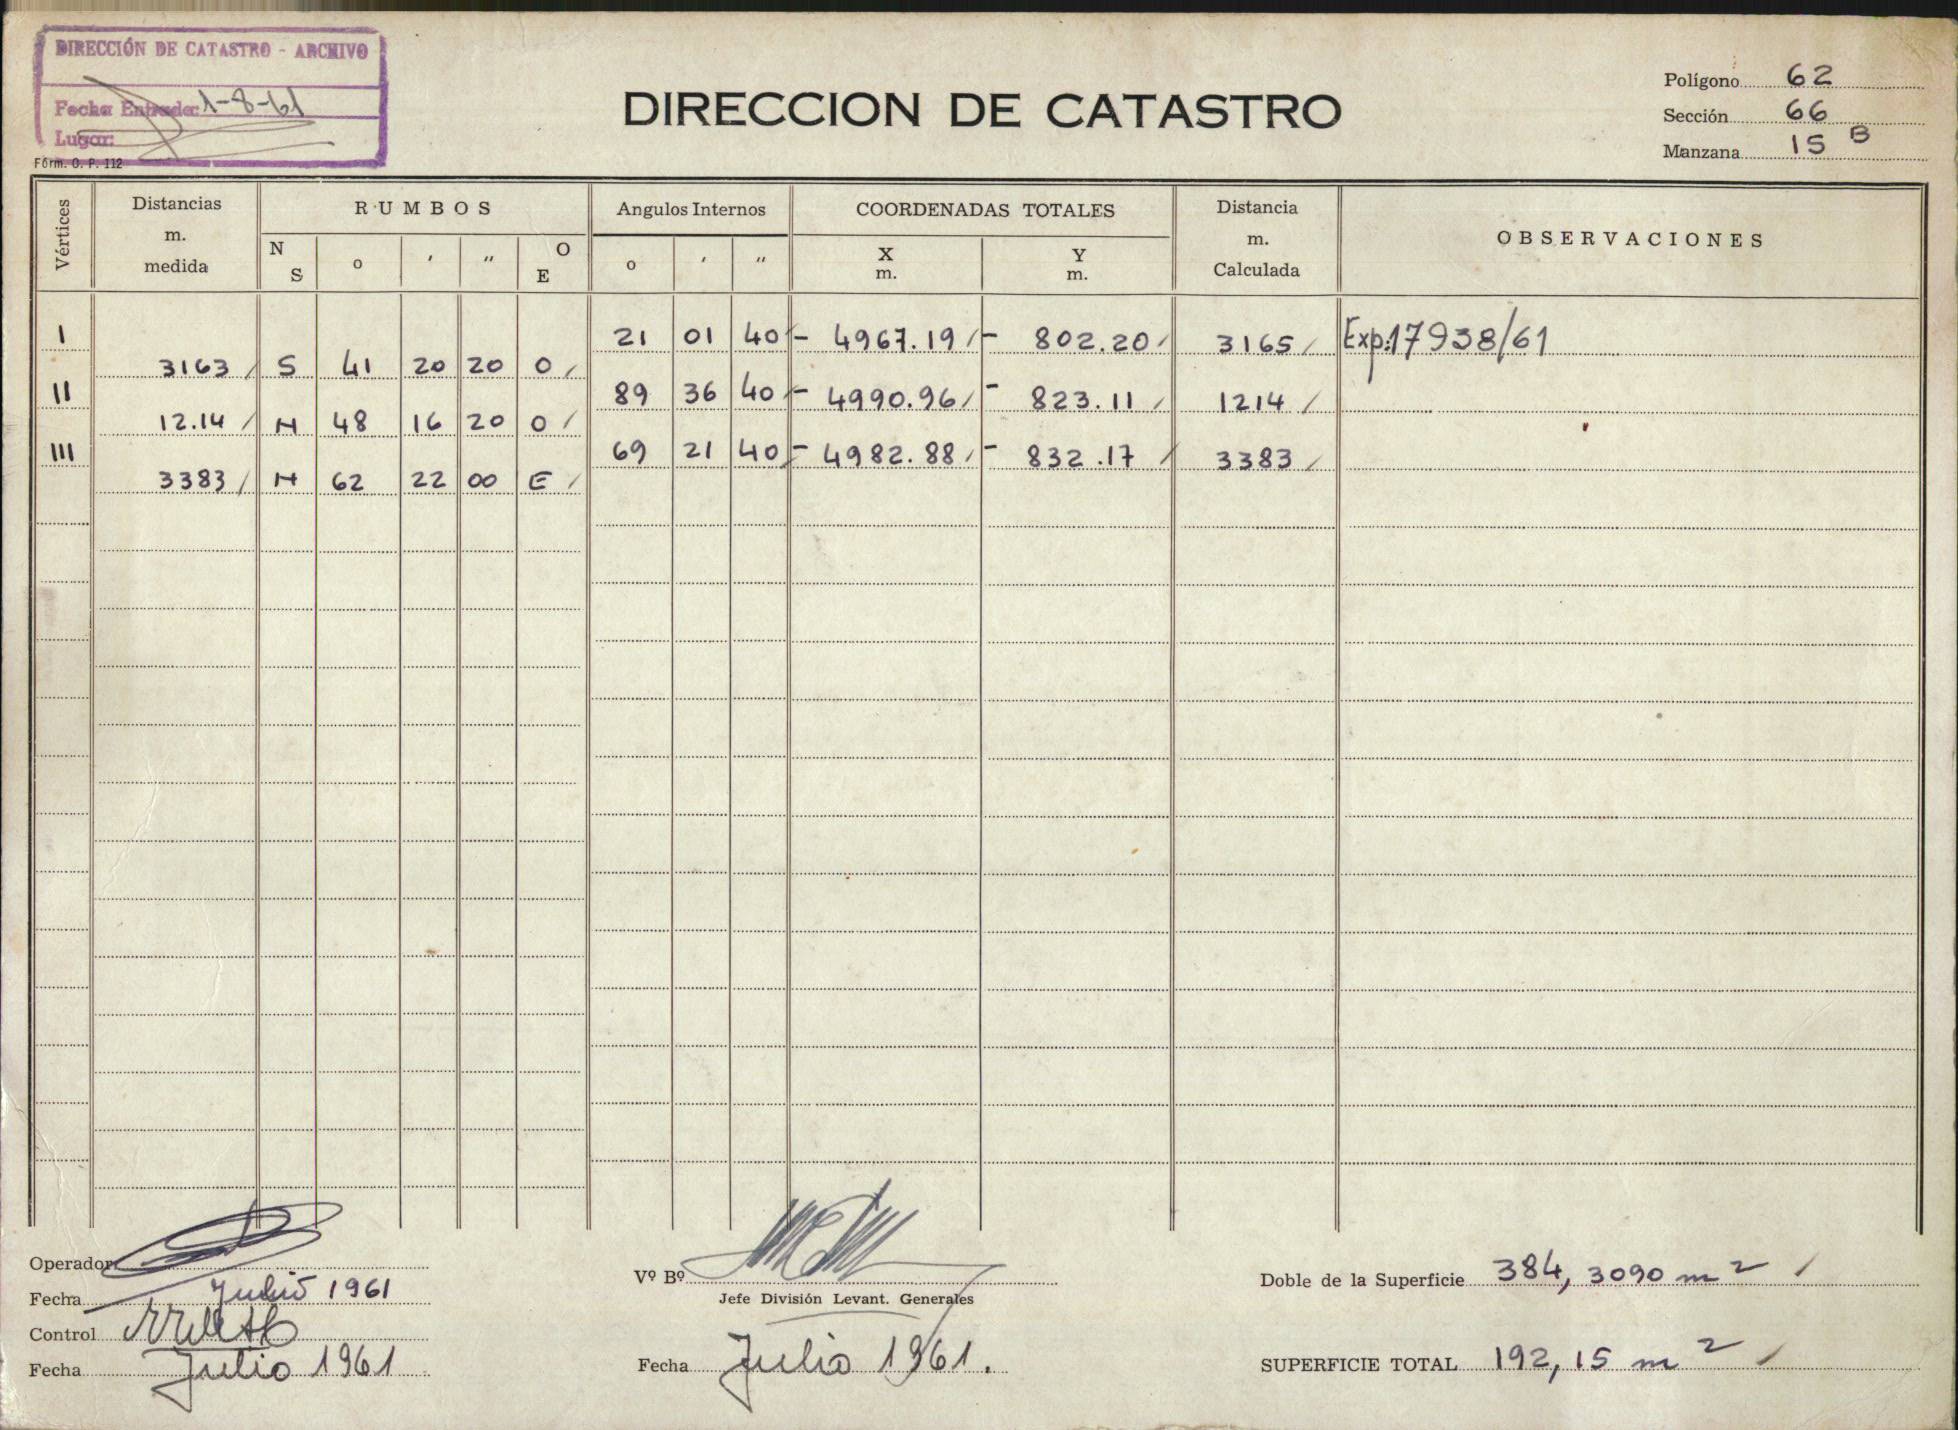 DIRECCIÓN DE CATASTRO - ARCHIVO
Fecha Entrada: 1-8-61
Lugar:
Fórm. O. P. 112
DIRECCION DE CATASTRO
Polígono 62
Sección 66
Manzana 15 B
Vértices
Distancias m. medida
RUMBOS
N S o ′ ″ O E
Angulos Internos
o ′ ″
COORDENADAS TOTALES
X m. Y m.
Distancia m. Calculada
OBSERVACIONES
I 21 01 40 - 4967.19 - 802.20 3165 Exp:17938/61
3163 S 41 20 20 O
II 89 36 40 - 4990.96 - 823.11 1214
12.14 N 48 16 20 O
III 69 21 40 - 4982.88 - 832.17 3383
3383 N 62 22 00 E
Operador
Fecha Julio 1961
Control
Fecha Julio 1961
Vº Bº
Jefe División Levant. Generales
Fecha Julio 1961.
Doble de la Superficie 384,3090 m²
SUPERFICIE TOTAL 192,15 m²